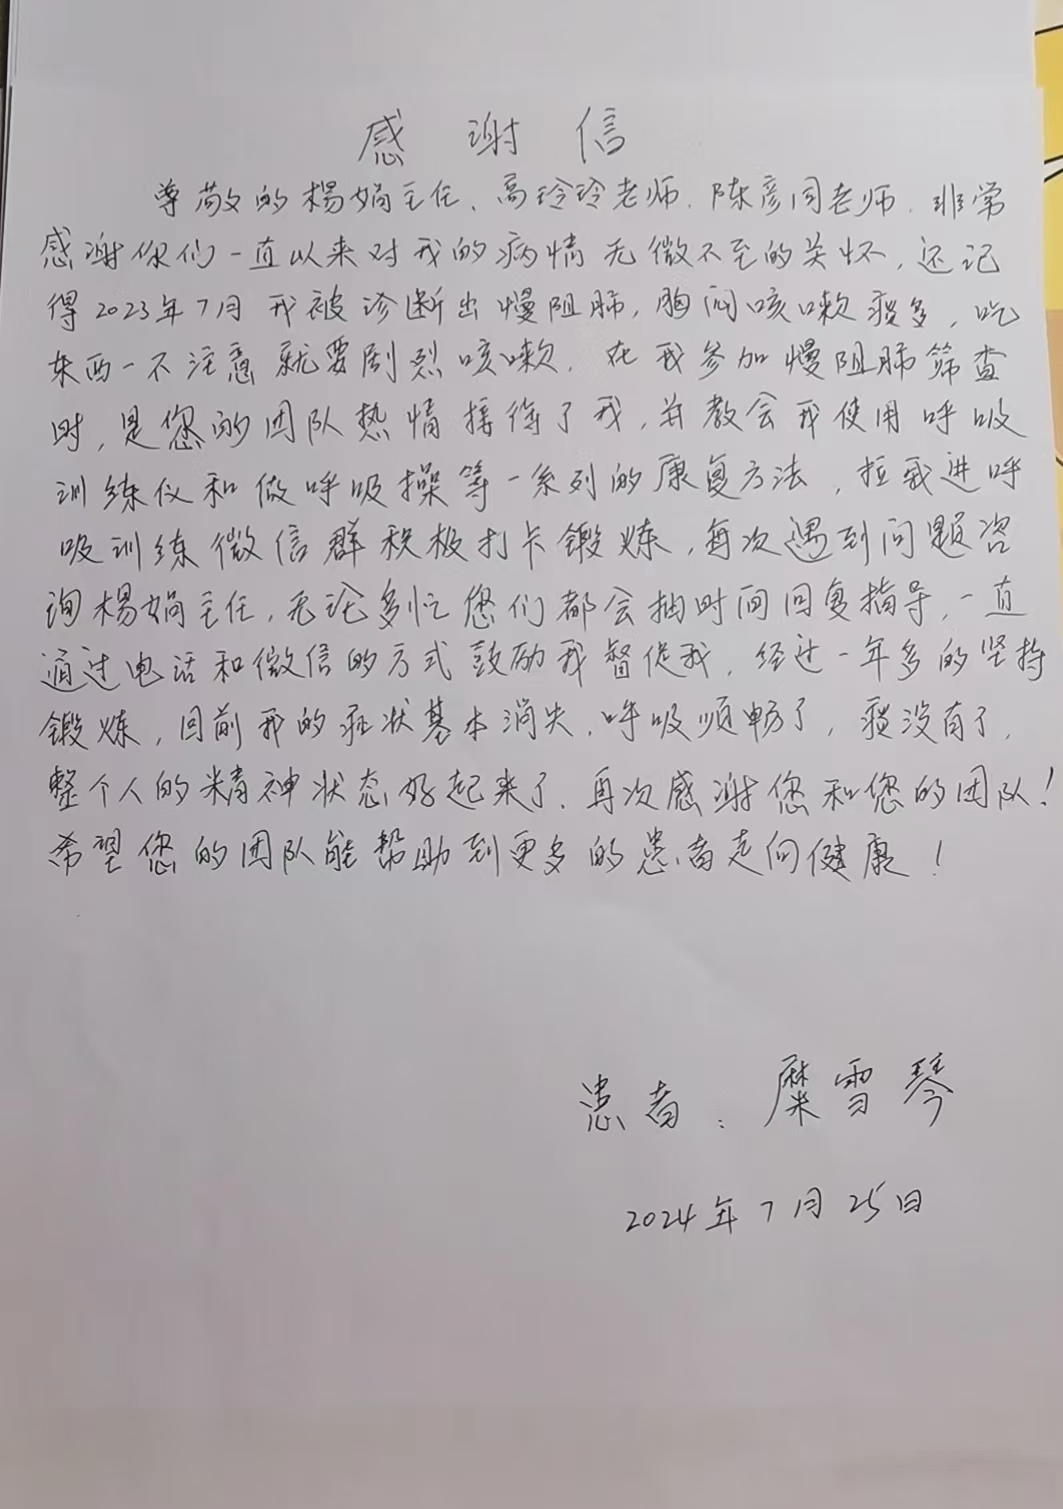 感谢信
尊敬的杨娟主任、高玲玲老师、陈彦同老师，非常
感谢你们一直以来对我的病情无微不至的关怀，还记
得2023年7月我被诊断出慢阻肺，胸闷咳嗽痰多，吃
东西一不注意就要剧烈咳嗽，在我参加慢阻肺筛查
时，是您的团队热情接待了我，并教会我使用呼吸
训练仪和做呼吸操等一系列的康复方法，拉我进呼
吸训练微信群积极打卡锻炼，每次遇到问题咨
询杨娟主任，无论多忙您们都会抽时间回复指导，一直
通过电话和微信的方式鼓励我督促我，经过一年多的坚持
锻炼，目前我的症状基本消失，呼吸顺畅了，痰没有了，
整个人的精神状态好起来了，再次感谢您和您的团队！
希望您的团队能帮助到更多的患者走向健康！
患者：糜雪琴
2024年7月25日